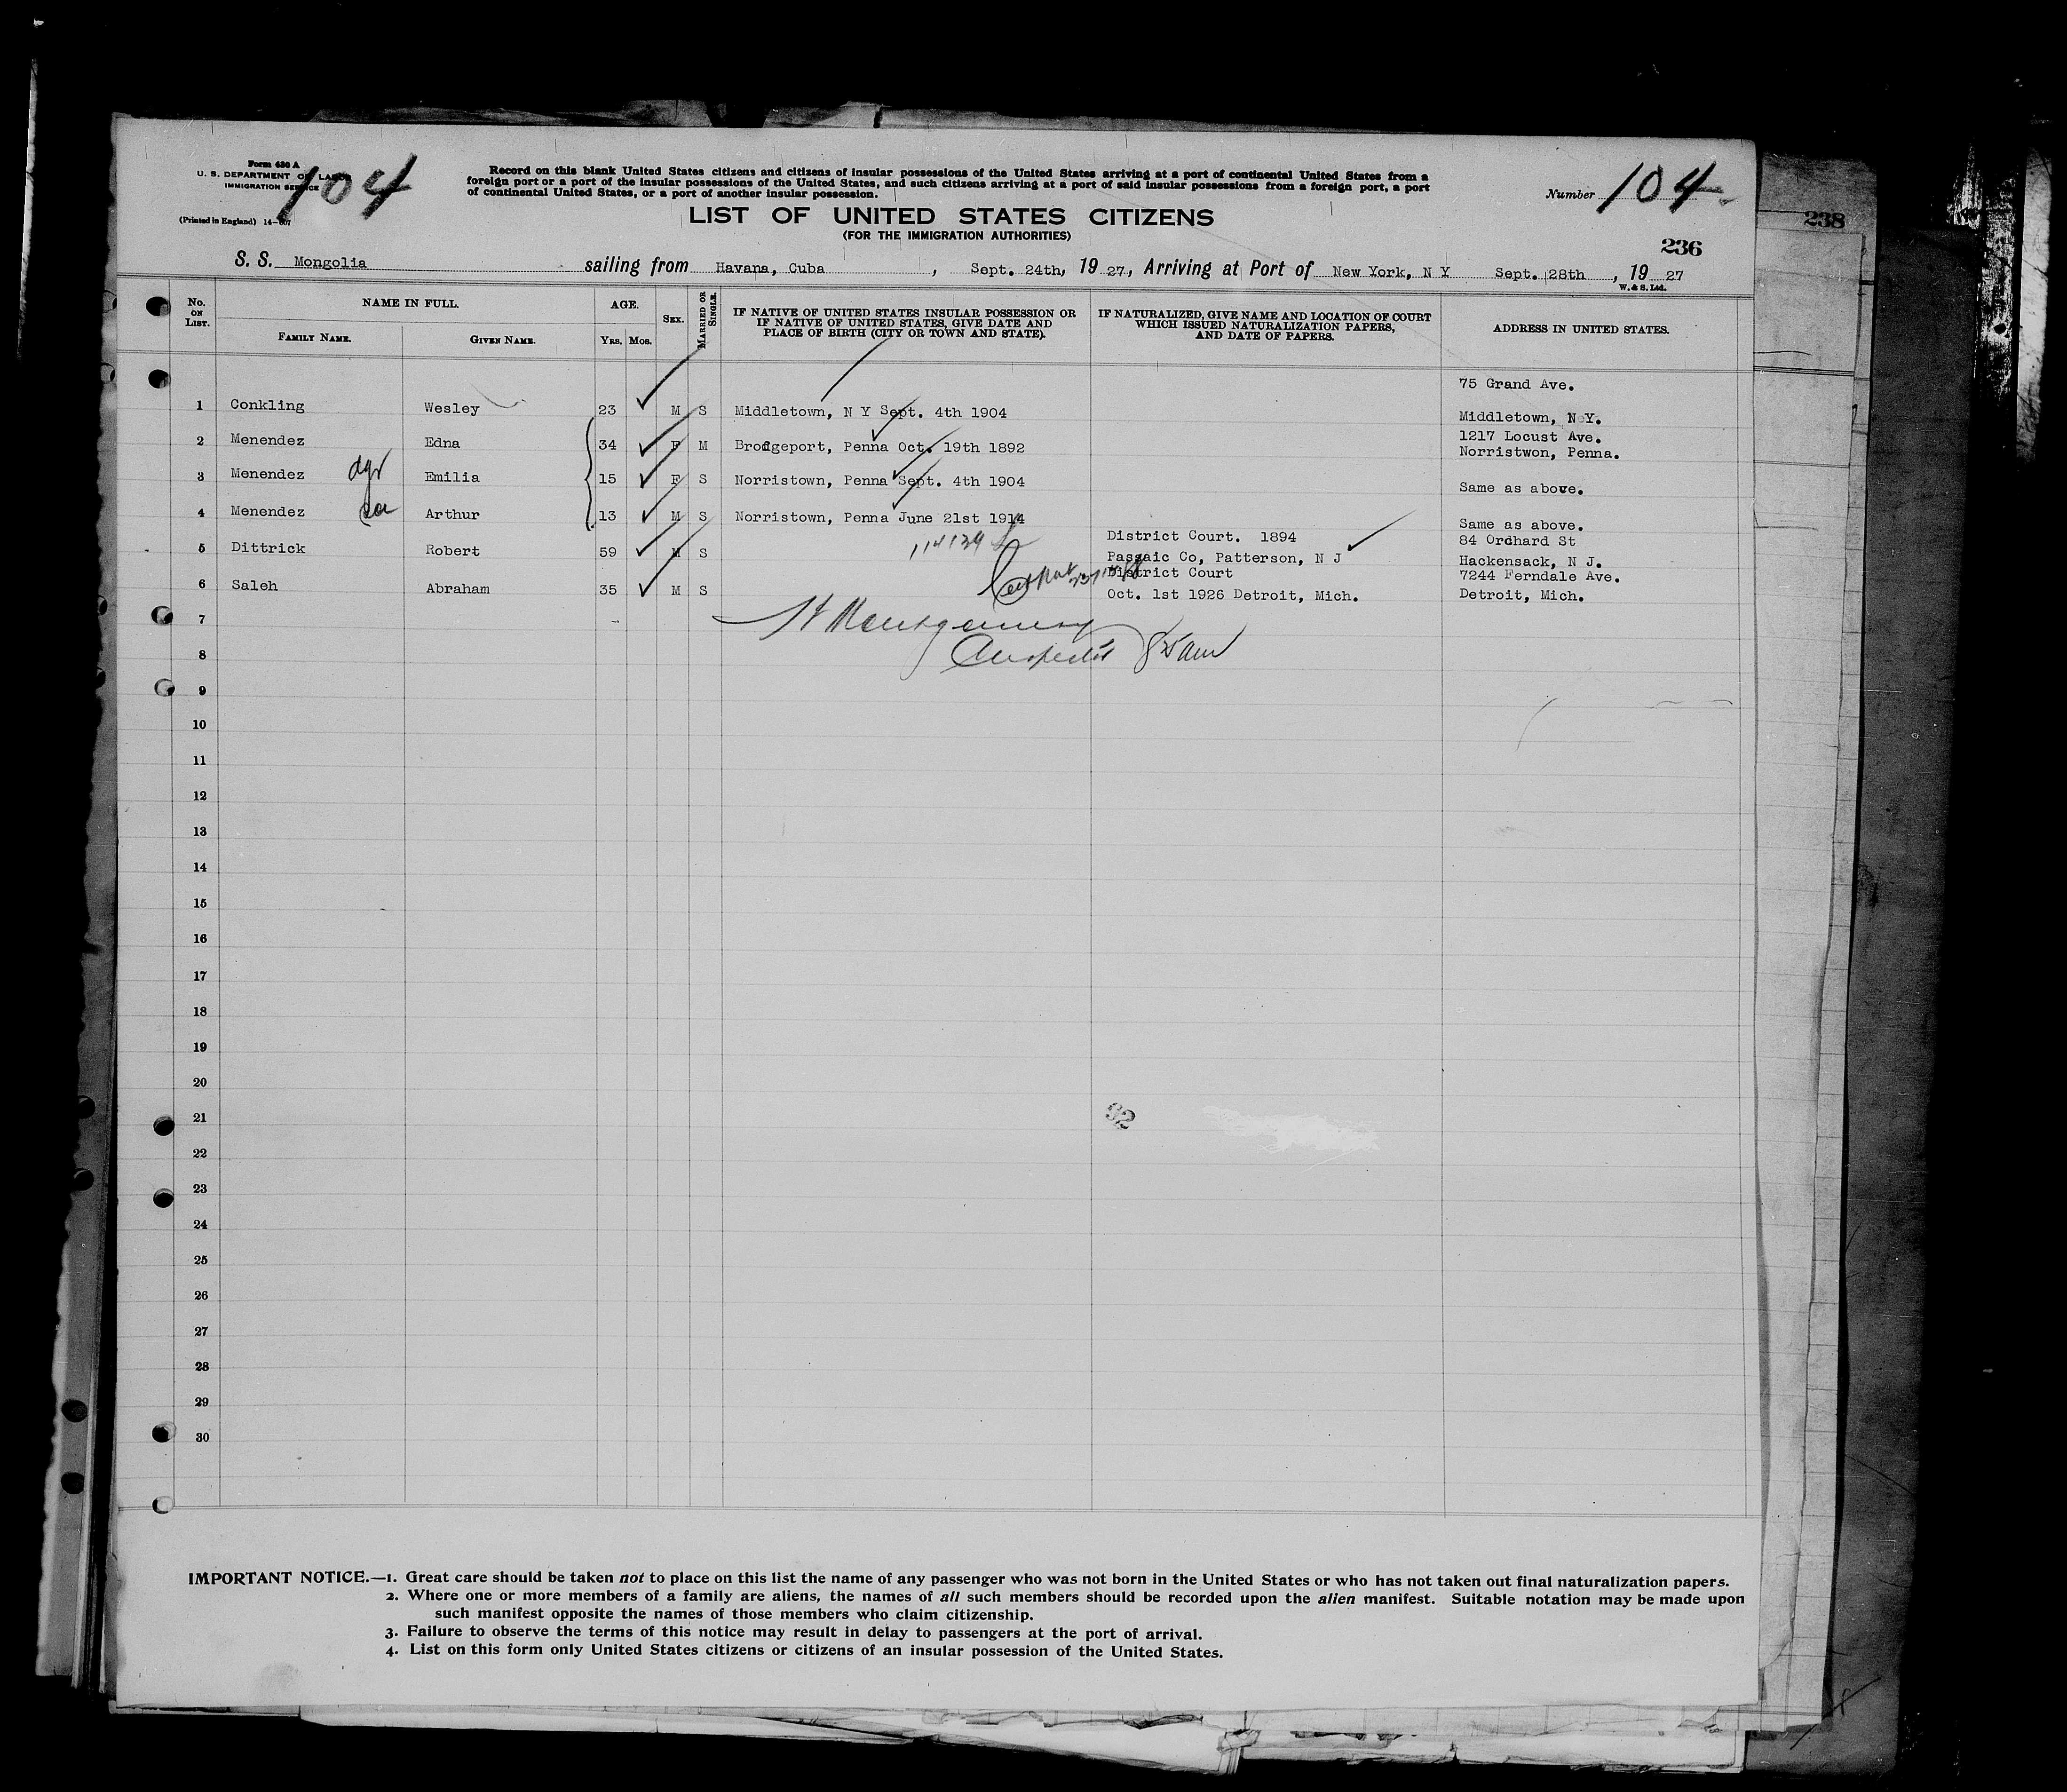 Form 630 A
U. S. DEPARTMENT OF LABOR
IMMIGRATION SERVICE
(Printed in England) 14-607
104
Record on this blank United States citizens and citizens of insular possessions of the United States arriving at a port of continental United States from a
foreign port or a port of the insular possessions of the United States, and such citizens arriving at a port of said insular possessions from a foreign port, a port
of continental United States, or a port of another insular possession.
Number 104
LIST OF UNITED STATES CITIZENS
(FOR THE IMMIGRATION AUTHORITIES)
236
238
S. S. Mongolia sailing from Havana, Cuba, Sept. 24th, 19 27, Arriving at Port of New York, N Y Sept. 28th, 19 27
W. & S. Ltd.
No. ON LIST. NAME IN FULL. AGE. SEX. MARRIED OR SINGLE. IF NATIVE OF UNITED STATES INSULAR POSSESSION OR IF NATIVE OF UNITED STATES, GIVE DATE AND PLACE OF BIRTH (CITY OR TOWN AND STATE). IF NATURALIZED, GIVE NAME AND LOCATION OF COURT WHICH ISSUED NATURALIZATION PAPERS, AND DATE OF PAPERS. ADDRESS IN UNITED STATES.
FAMILY NAME. GIVEN NAME. YRS. MOS.
75 Grand Ave.
1 Conkling Wesley 23 M S Middletown, N Y Sept. 4th 1904 Middletown, N Y.
2 Menendez Edna 34 F M Brodgeport, Penna Oct. 19th 1892 1217 Locust Ave.
Norristwon, Penna.
3 Menendez dgr Emilia 15 F S Norristown, Penna Sept. 4th 1904 Same as above.
4 Menendez Arthur 13 M S Norristown, Penna June 21st 1914 Same as above.
District Court. 1894 84 Orchard St
5 Dittrick Robert 59 M S Passaic Co, Patterson, N J Hackensack, N J.
District Court 7244 Ferndale Ave.
6 Saleh Abraham 35 M S Oct. 1st 1926 Detroit, Mich. Detroit, Mich.
7
8
9
10
11
12
13
14
15
16
17
18
19
20
21
32
22
23
24
25
26
27
28
29
30
IMPORTANT NOTICE.—1. Great care should be taken not to place on this list the name of any passenger who was not born in the United States or who has not taken out final naturalization papers.
2. Where one or more members of a family are aliens, the names of all such members should be recorded upon the alien manifest. Suitable notation may be made upon
such manifest opposite the names of those members who claim citizenship.
3. Failure to observe the terms of this notice may result in delay to passengers at the port of arrival.
4. List on this form only United States citizens or citizens of an insular possession of the United States.